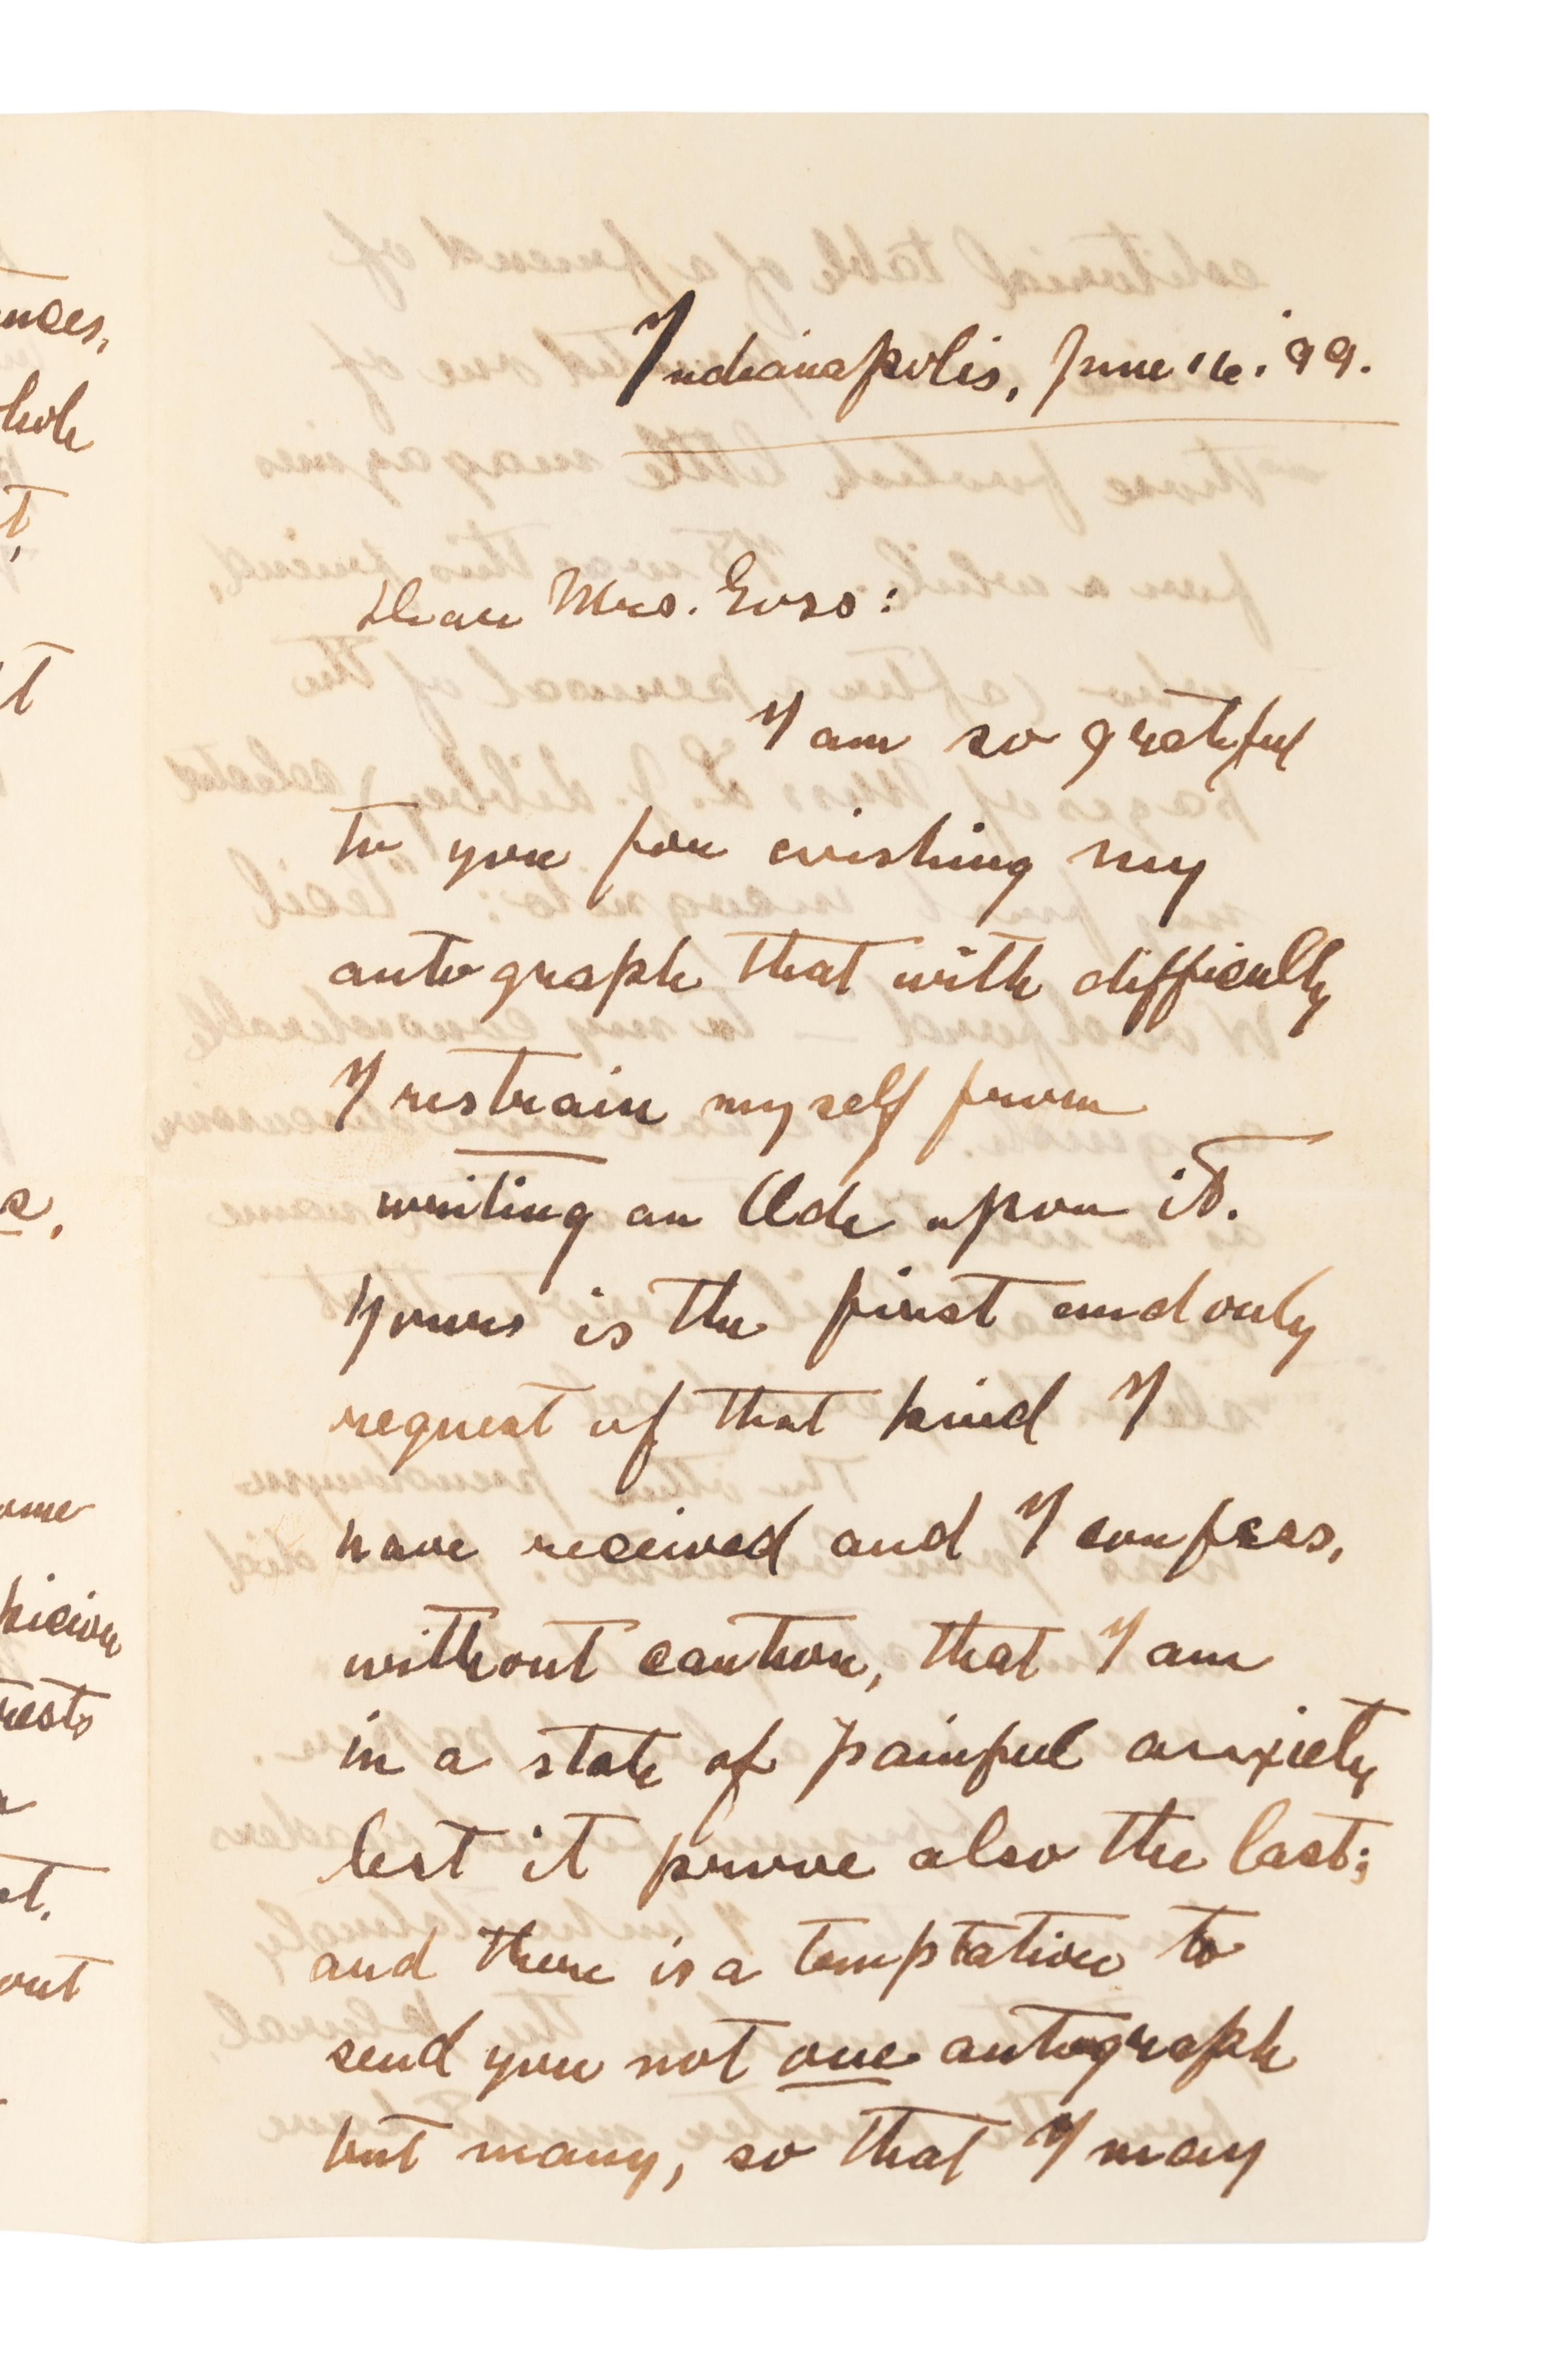 nces,
hole
t,
it
s.
ome
picion
rests
t.
out
Indianapolis, June 16. '99.
Dear Mrs. Goss:
I am so grateful
to you for wishing my
autograph that with difficulty
I restrain myself from
writing an Ode upon it.
Yours is the first and only
request of that kind I
have received and I confess,
without caution, that I am
in a state of painful anxiety
lest it prove also the last;
and there is a temptation to
send you not one autograph
but many, so that I may